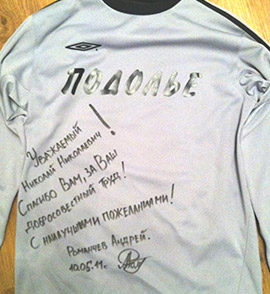 ПОДОЛЬЕ
Уважаемый
Николай Николаевич!
Спасибо Вам, за Ваш
добросовестный труд!
С наилучшими пожеланиями!
Романчев Андрей.
10.05.11.